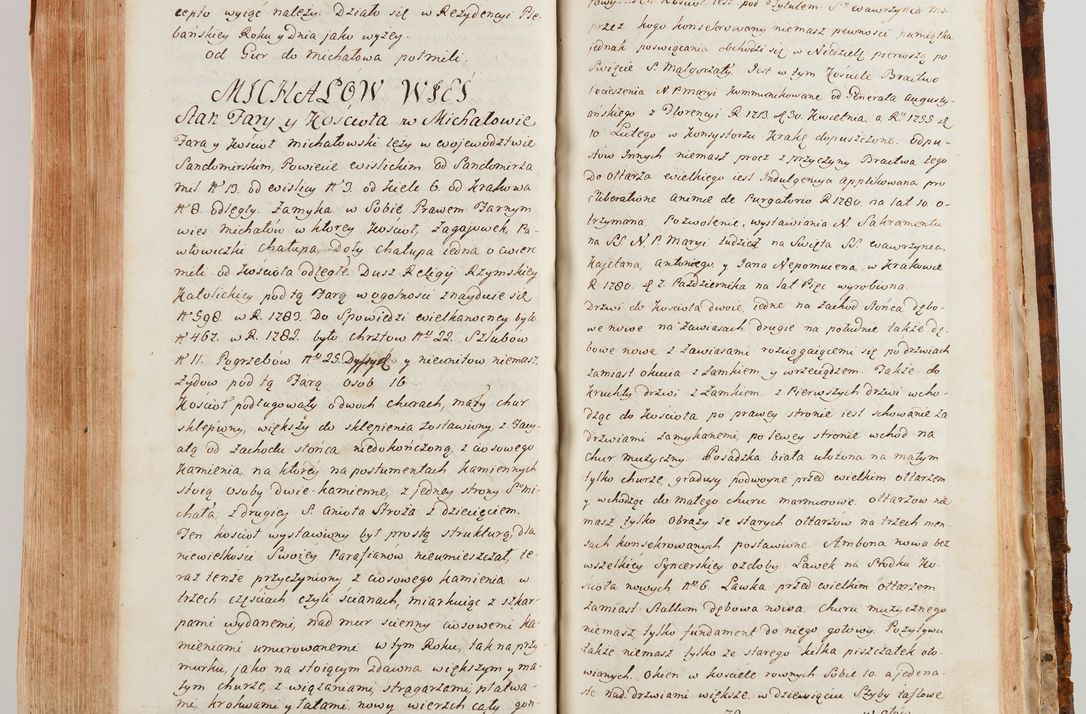 cepto wyiąć należy. Działo się w Rezydencyi Ple-
bańskiey Roku y Dnia jako wyżey.
Od Gur do Michałowa pół mili.
MICHAŁÓW WIEŚ
Stan Fary y Kościoła w Michałowie
Fara y Kościoł Michałowski leży w Wojewodztwie
Sandomirskim, Powiecie Wislickim od Sandomirza
mil Nº 13. od Wislicy Nº 3. od Kielc 6. od Krakowa
Nº 8. odległy. Zamyka w Sobie Prawem Farnym
wies Michałów w ktorey Kościoł, Zagajowek, Pa-
włowiczki chałupa, Doły chałupa iedna o cwierć
mili od Kościoła odległe. Dusz Religij Rzymskiey
Katolickiey pod tą Farą w ogolnosci znayduie się
Nº 598. w R. 1783. Do Spowiedzi wielkanocney było
Nº 467. w R. 1782. było chrztow Nº 22. Szlubow
Nº 11. Pogrzebow Nº 25. y nieunitow niemasz,
Żydow pod tą Farą osob 16.
Kościoł podługowaty o dwoch churach, mały chur
sklepiony, większy do sklepienia zostawiony z Facy-
atą od zachodu słońca niedokończoną, z ciosowego
kamienia, na ktorey na postumentach kamiennych
stoią osoby dwie kamienne, z jedney strony Sgo Mi-
chała, z drugiey S. Anioła Stroża z Dziecięciem.
Ten Kościoł wystawiony był prostą strukturą, dla
niewielkości Swoiey Parafianow nieumieszczał, te-
raz tenże przyczyniony z ciosowego kamienia w
trzech częściach czyli scianach, miarkuiąc z szkar-
pami wydanemi, nad mur scienny ciosowemi ka-
mieniami umurowanemi w tym Roku, tak na przy-
murku, jako na stoiącym zdawna większym y ma-
łym churze, z wiązaniami, stragarzami, płatwa-
mi, krokwami y łatami, nowy wierzch cały gon-
przez kogo konsekrowany niemasz pewności pamiątka
jednak poswięcania obchodzi się w Niedzielę pierwszą po
Swięcie S. Małgorzaty. Jest w tym Kościele Bractwo
Pocieszenia N. P. Maryi kommunikowane od Generała Augusty-
ańskiego z Florencyi R 1713. d. 30. Kwietnia a Rº 1755 d.
10 Lutego w Konsystorzu Krakº dopuszczone. Odpu-
stow Innych niemasz procz z przyczyny Bractwa tego
Do ołtarza wielkiego iest Indulgencya applikowana pro
liberatione animæ de Purgatorio R 1780. na lat 10. o-
trzymana. Pozwolenie, wystawiania N. Sakramentu
na SS N. P. Maryi tudzież na Swięta SS. Wawrzyńca,
Kajetana, Antoniego, y Jana Nepomucena, w Krakowie
R 1780. d 7. Października na lat Pięć wyrobiona.
Drzwi do Kościoła dwoie, iedne na zachod Słońca Dębo-
we nowe na zawiasach drugie na południe także dę-
bowe nowe z zawiasami rozciągaiącemi się po drzwiach
zamiast okucia z zamkiem y wrzeciądzem. Także do
kruchty drzwi z zamkiem. z Pierwszych drzwi wcho-
dząc do Kościoła po prawey stronie iest schowanie za
drzwiami zamykanemi, po lewey stronie wchod na
chur muzyczny. Posadzka biała ułożona na małym
tylko churze, gradusy podwoyne przed wielkim ołtarzem
y wchodząc do małego churu marmurowe. Ołtarzow nie
masz tylko obrazy ze starych ołtarzow na trzech men-
sach konsekrowanych postawione. Ambona nowa bez
wszelkiey Synicerskiey ozdoby. Ławek na Srodku Ko-
ścioła nowych Nº 6. Ławka przed wielkim ołtarzem
zamiast Stallum Dębowa nowa. Churu muzycznego
niemasz tylko fundament do niego gotowy. Pozytywu
także niemasz tylko ze starego kilka piszczałek oło-
wianych. Okien w kościele rownych Sobie 10. a jedena-
ste nad drzwiami większe. w dziewięciu Szyby taflowe